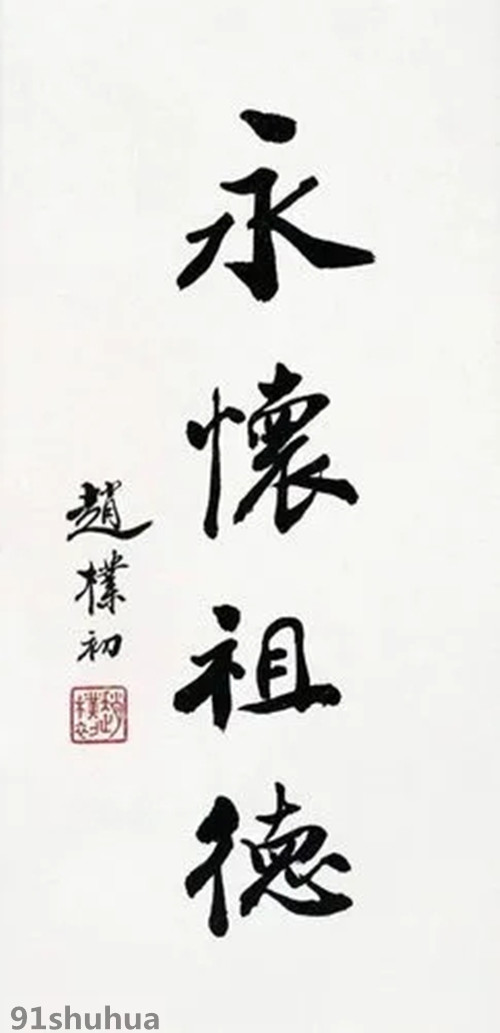 永懷祖德
趙樸初
趙樸初
91shuhua